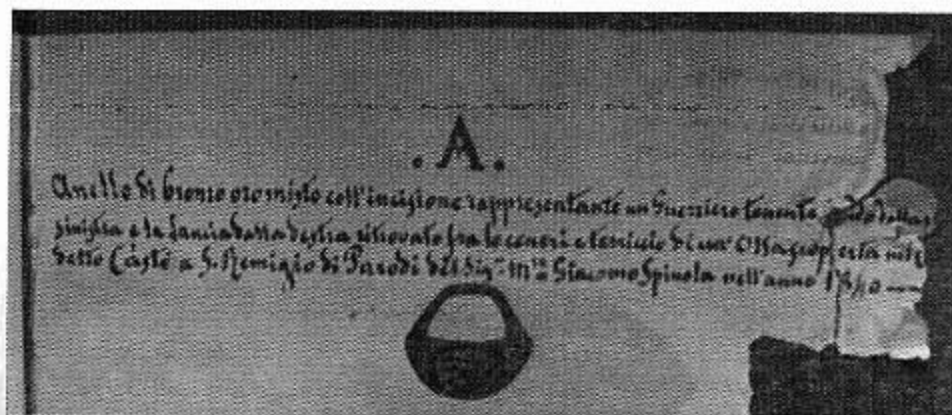 . A .
Anello di bronzo oro misto coll'incisione rappresentante un Guerriero tenente scudo dalla
sinistra e la lancia dalla destra ritrovato fra le ceneri e terriccio di un' Ossa scoperta nel
detto Castè a S. Remigio di Parodi del Sig.r M.se Giacomo Spinola nell'anno